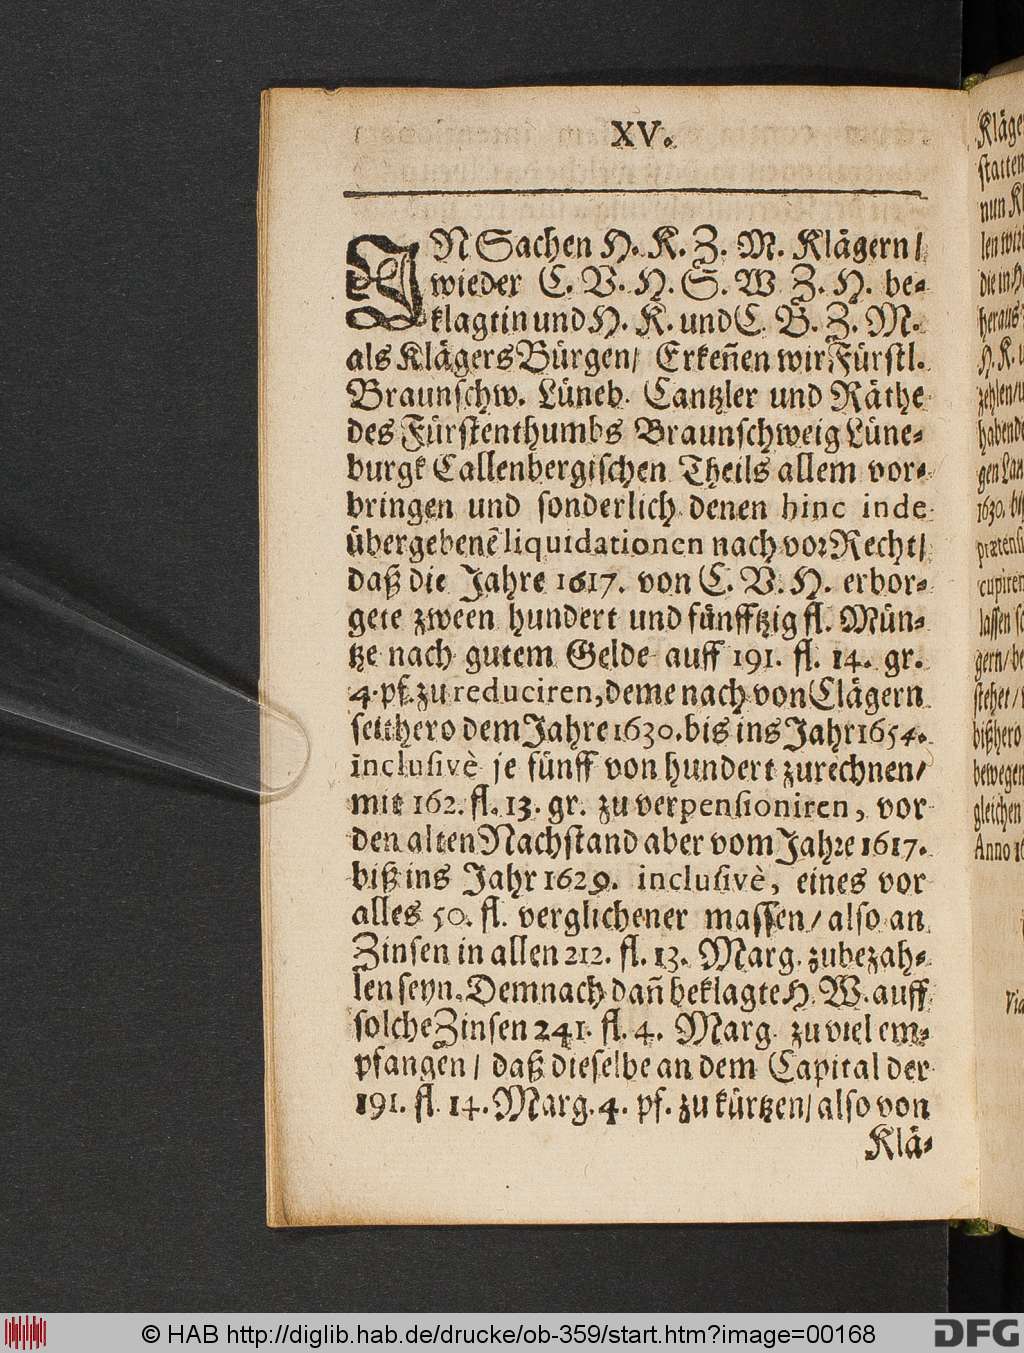 XV.
IN Sachen H. K. Z. M. Klägern/
wieder C. V. H. S. W. Z. H. be-
klagtin und H. K. und C. B. Z. M.
als Klägers Bürgen/ Erkeñen wir Fürstl.
Braunschw. Lüneb. Cantzler und Räthe
des Fürstenthumbs Braunschweig Lüne-
burgk Callenbergischen Theils allem vor-
bringen und sonderlich denen hinc inde
übergebenē liquidationen nach vor Recht/
daß die Jahre 1617. von C. V. H. erbor-
gete zween hundert und fünfftzig fl. Mün-
tze nach gutem Gelde auff 191. fl. 14. gr.
4. pf. zu reduciren, deme nach von Clägern
seithero dem Jahre 1630. bis ins Jahr 1654.
inclusivè je fünff von hundert zurechnen/
mit 162. fl. 13. gr. zu verpensioniren, vor
den alten Nachstand aber vom Jahre 1617.
biß ins Jahr 1629. inclusivè, eines vor
alles 50. fl. verglichener massen/ also an
Zinsen in allen 212. fl. 13. Marg. zubezah-
len seyn. Demnach dañ beklagte H. W. auff
solche Zinsen 241. fl. 4. Marg. zu viel em-
pfangen/ daß dieselbe an dem Capital der
191. fl. 14. Marg. 4. pf. zu kürtzen/ also von
Klä-
Kläge
statten
nun Kl
len wir
die in H
heraus
H. K. u
zehlen/u
habende
gen Lan
1630. bi
prætensi
cupiren
lassen so
gern/ be
stehet/
bißhero
bewegen
gleichen
Anno 16
© HAB http://diglib.hab.de/drucke/ob-359/start.htm?image=00168
DFG